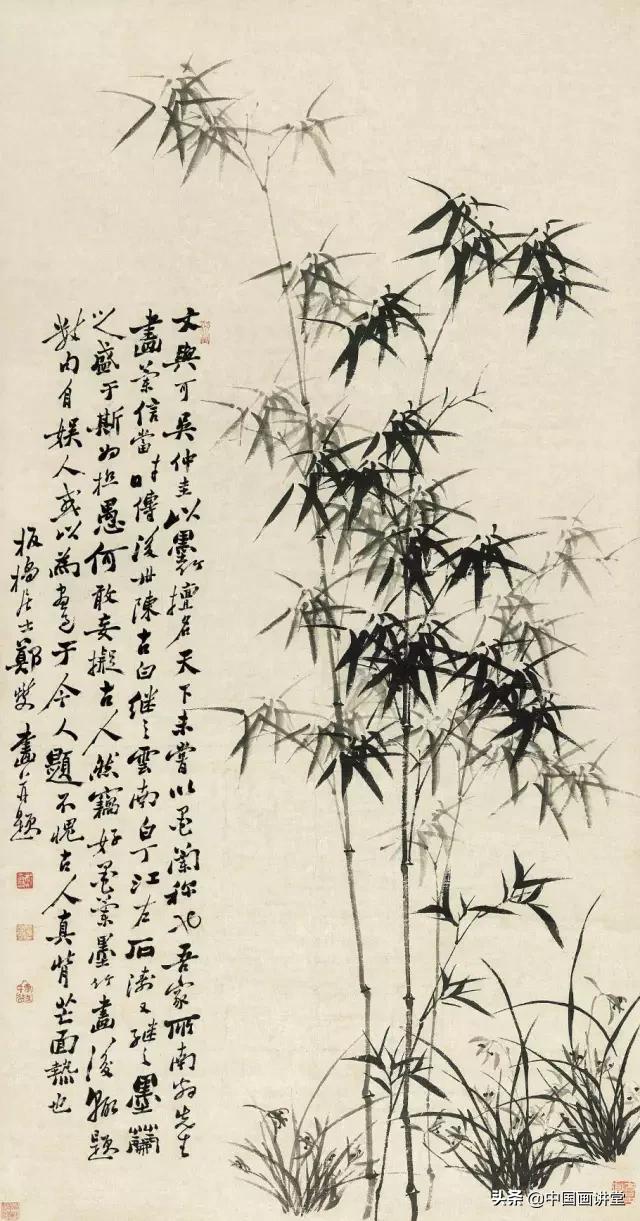 文與可吳仲圭以墨竹擅名天下未嘗以墨蘭称也吾家所南翁先生
畫蘭信當時傳後世陳古白継之雲南白丁江左石濤又継之墨蘭
之盛于斯為極愚何敢妄擬古人然竊好墨蘭墨竹畫後輒題
數句自娱人或以為畫于今人題不愧古人真背芒面熱也
板橋居士鄭燮畫并題
头条 @中国画讲堂